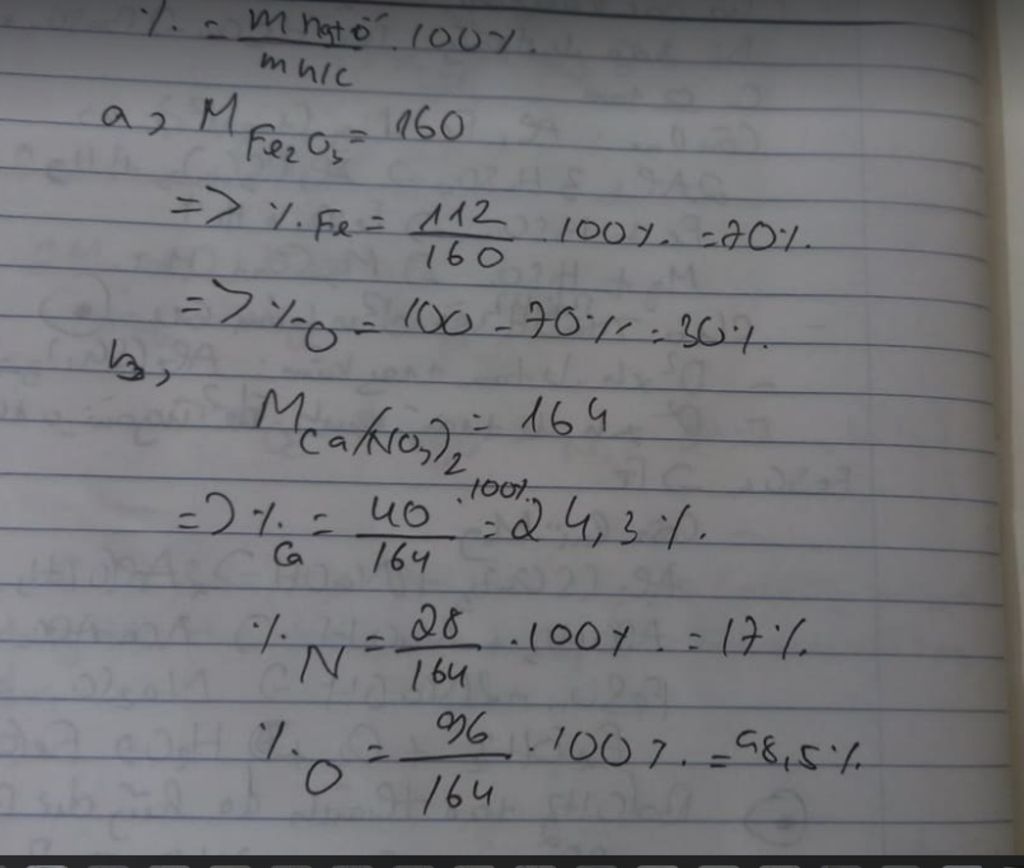 % = m ngtố / m h/c . 100%.
a, M Fe2O3 = 160
=> %. Fe = 112 / 160 . 100%. = 70%.
=> %O = 100 - 70% = 30%.
b,
M Ca(NO3)2 = 164
=> % Ca = 40 / 164 .100% = 24,3%.
% N = 28 / 164 .100% = 17%.
% O = 96 / 164 .100%. = 58,5%.